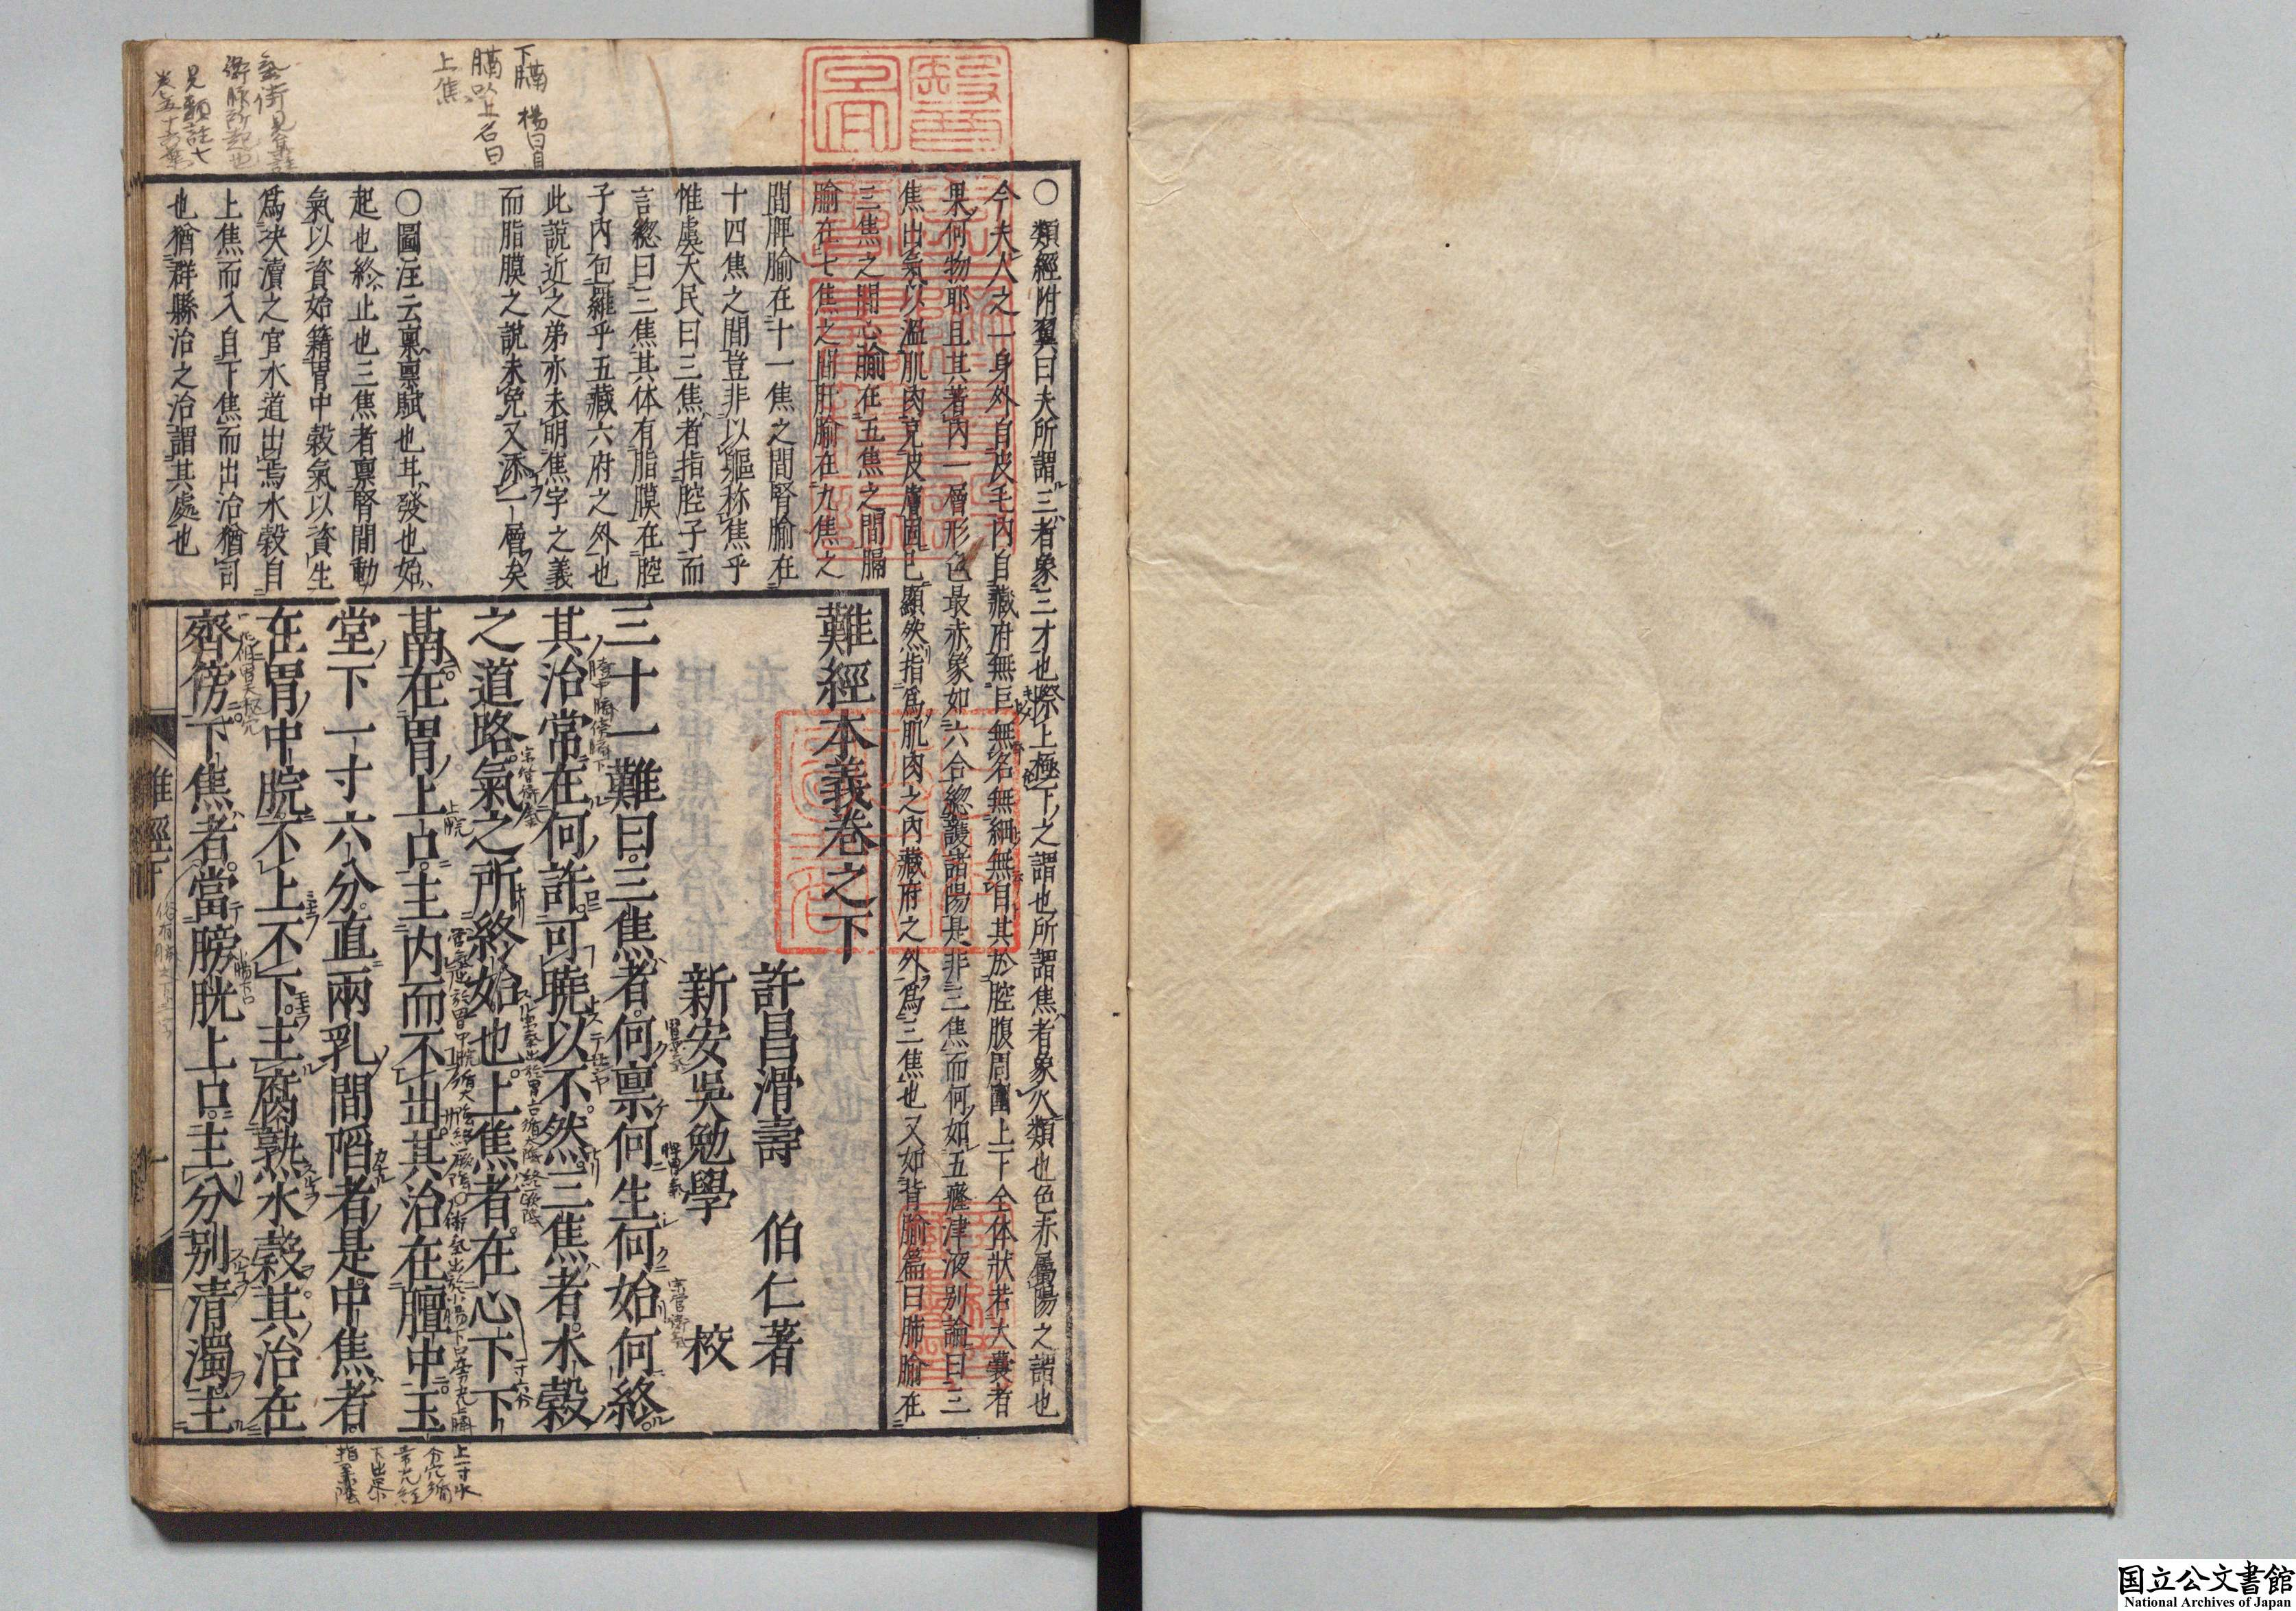 ○類經附翼曰夫所謂三者象三才也際上極下之謂也所謂焦者象火類也色赤屬陽之謂也
今夫人之一身外自皮毛内自藏府無巨無名無細無目其於腔腹周圍上下全体狀若大囊者
果何物耶且其著内一層形色最赤象如六合總護諸陽是非三焦而何如五癃津液別論曰三
焦出氣以溫肌肉充皮膚固已顯然指爲肌肉之内藏府之外爲三焦也又如背腧篇曰肺腧在
三焦之間心腧在五焦之間膈
腧在七焦之間肝腧在九焦之
間脾腧在十一焦之間腎腧在
十四焦之間豈非以軀称焦乎
惟虞天民曰三焦者指腔子而
言總曰三焦其体有脂膜在腔
子内包羅乎五藏六府之外也
此說近之弟亦未明焦字之義
而脂膜之說未免又添一層矣
○圖注云禀禀賦也其發也始
起也終止也三焦者禀腎間動
氣以資始籍胃中穀氣以資生
爲决瀆之官水道出焉水穀自
上焦而入自下焦而出治猶司
也猶群縣治之治謂其處也
難經本義卷之下
許昌滑壽　伯仁著
新安吳勉學　校
三十一難曰三焦者何禀何生何始何終
其治常在何許可曉以不然三焦者水穀
之道路氣之所終始也上焦者在心下下
鬲在胃上口主内而不出其治在膻中玉
堂下一寸六分直兩乳間陷者是中焦者
在胃中脘不上不下主腐熟水穀其治在
齊傍下焦者當膀胱上口主分別清濁主
難經下
一
下膈　楊曰自
膈以上名曰
上焦
国立公文書館
National Archives of Japan